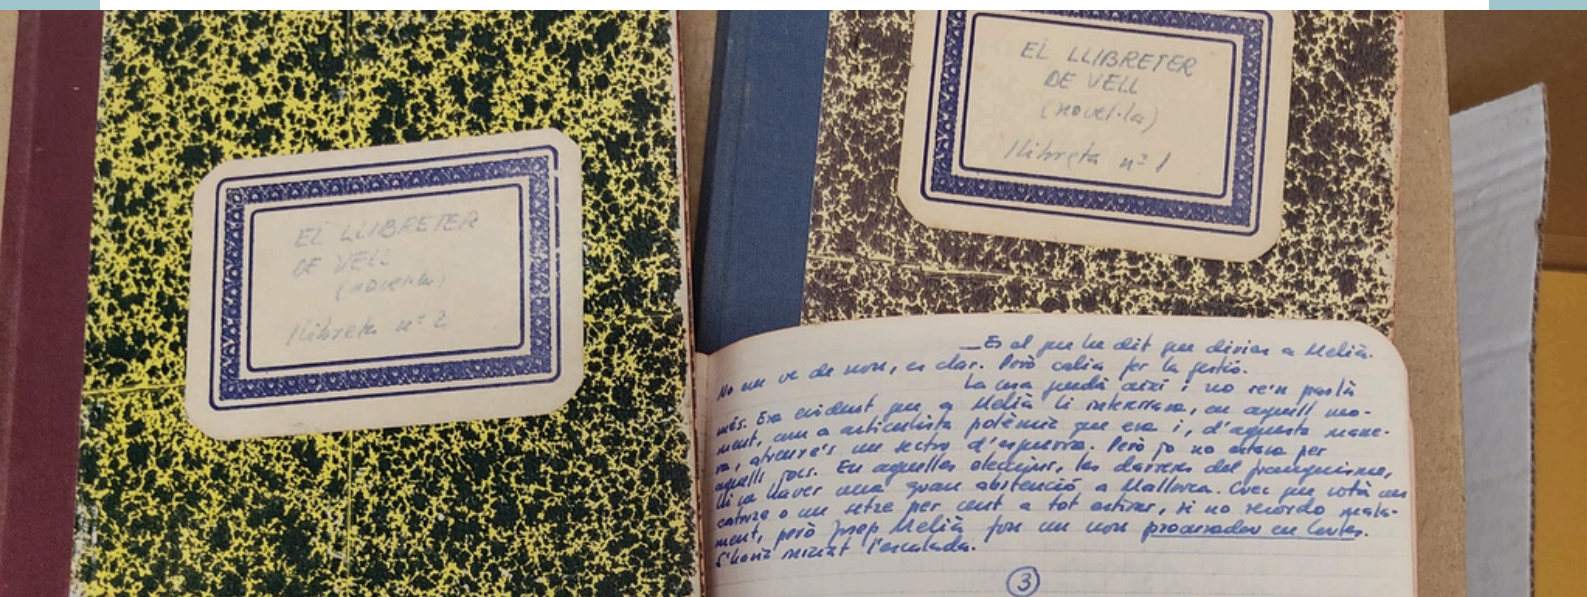 EL LLIBRETER
DE VELL
(novel·la)
llibreta nº 2
EL LLIBRETER
DE VELL
(novel·la)
llibreta nº 1
—És el que he dit que diries a Melià.
No em ve de nou, és clar. Però calia fer la gestió.
La cosa quedà així i no se'n parlà
més. Era evident que a Melià li interessava, en aquell mo-
ment, com a articulista polèmic que era i, d'aquesta mane-
ra, atreure's un sector d'esquerra. Però jo no estava per
aquells jocs. En aquelles eleccions, les darreres del franquisme,
hi va haver una gran abstenció a Mallorca. Crec que votà un
catorze o un setze per cent a tot estirar, si no recordo mala-
ment, però Josep Melià fou un nou procurador en Cortes.
S'havia iniciat l'escalada.
3